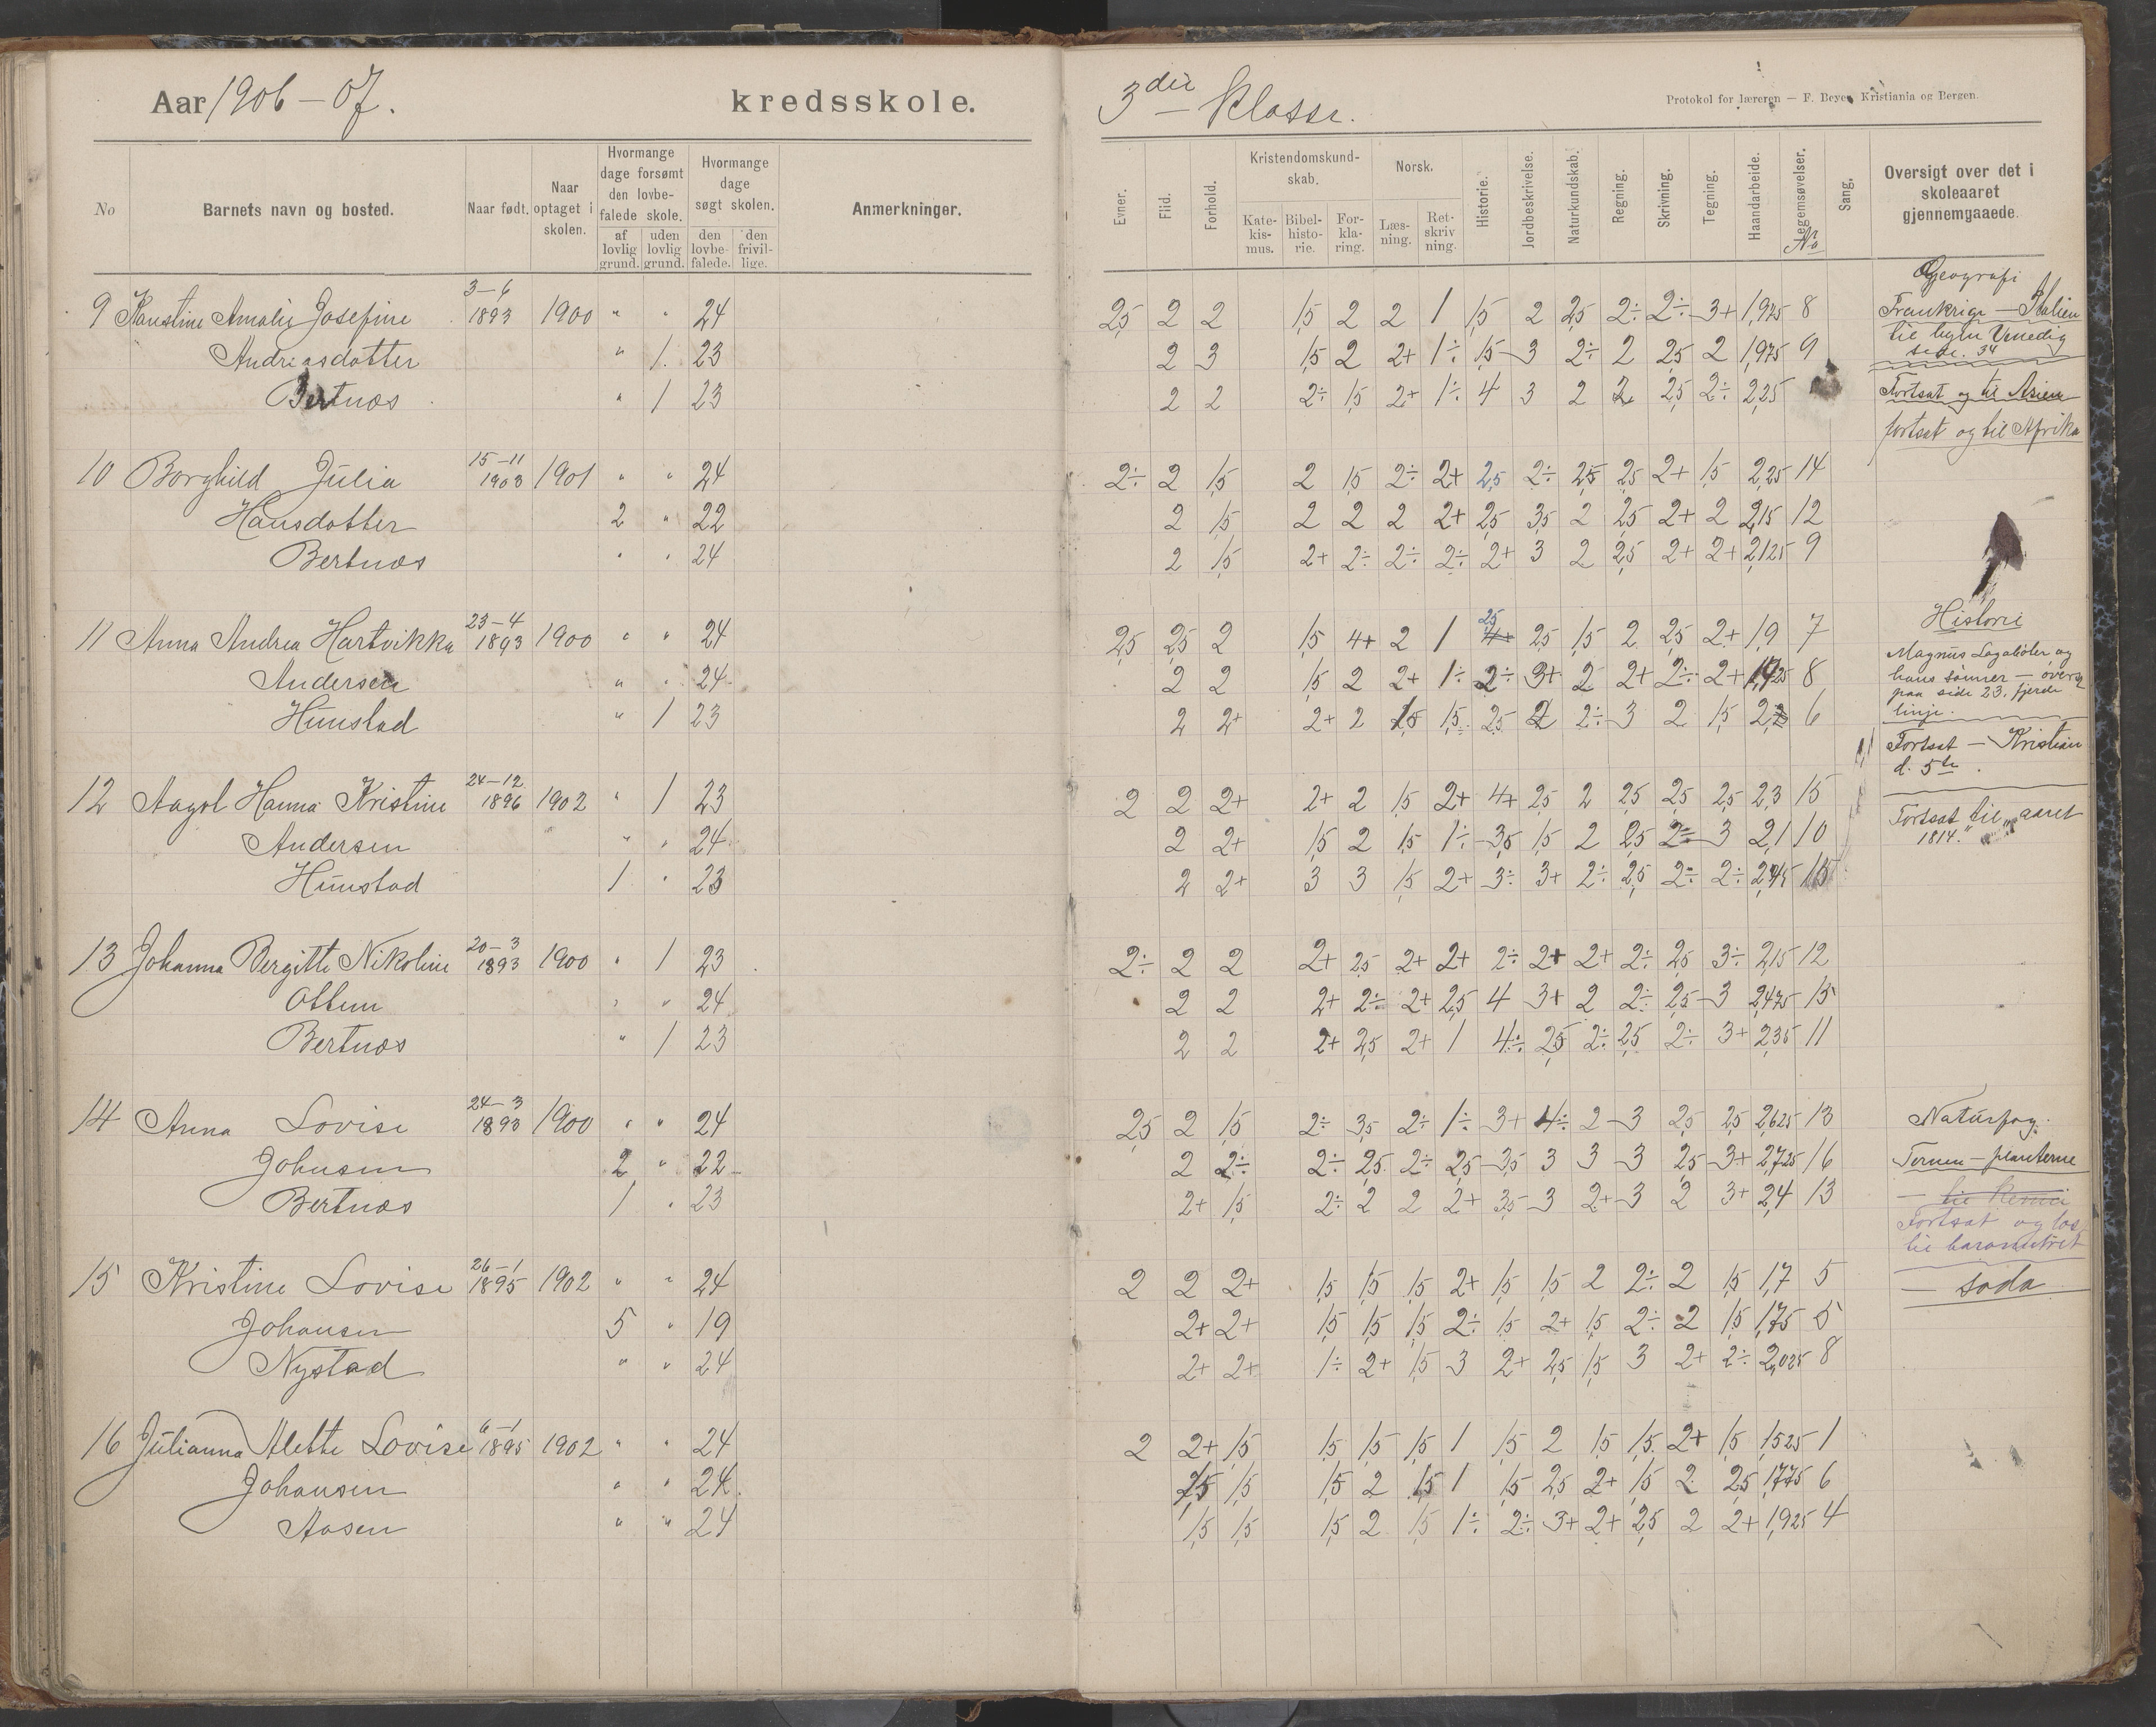 Aar 1906-07. kredsskole.
No
Barnets navn og bosted.
Naar født.
Naar optaget i skolen.
Hvormange dage forsømt den lovbefalede skole.
af lovlig grund.
uden lovlig grund.
Hvormange dage søgt skolen.
den lovbefalede.
den frivillige.
Anmerkninger.
9 Amalie Josefine 3-6 1893 1900 " " 24
Andreasdatter " 1. 23
Bertnæs " 1 23
10 Borghild Julia 15-11 1903 1901 " " 24
Hansdatter 2 " 22
Bertnæs " " 24
11 Anna Andrea Hartvikka 23-4 1893 1900 " " 24
Andersen " " 24
Hunstad " 1 23
12 Aagot Hanna Kristine 24-12 1896 1902 " 1 23
Andersen " " 24
Hunstad 1 " 23
13 Johanna Bergitte Nikoline 20-3 1893 1900 " 1 23
Ottem " " 24
Bertnæs " 1 23
14 Anna Lovise 24-3 1893 1900 " " 24
Johnsen 2 " 22
Bertnæs 1 " 23
15 Kristine Lovise 26-1 1895 1902 " " 24
Johansen 5 " 19
Nystad " " 24
16 Julianna Alette Lovise 6-1 1895 1902 " " 24
Johansen " " 24.
Aasen " " 24
3die Klasse.
Protokol for læreren — F. Beyer, Kristiania og Bergen.
Evner.
Flid.
Forhold.
Kristendomskundskab.
Katekismus.
Bibelhistorie.
Forklaring.
Norsk.
Læsning.
Retskrivning.
Historie.
Jordbeskrivelse.
Naturkundskab.
Regning.
Skrivning.
Tegning.
Haandarbeide.
Legemsøvelser.
No
Sang.
Oversigt over det i skoleaaret gjennemgaaede.
2,5 2 2 1,5 2 2 1 1,5 2 2,5 2÷ 2÷ 3+ 1,975 8
2 3 1,5 2 2+ 1÷ 1,5 3 2÷ 2 2,5 2 1,975 9
2 2 2÷ 1,5 2+ 1÷ 4 3 2 2 2,5 2÷ 2,25
2÷ 2 1,5 2 1,5 2÷ 2+ 2,5 2÷ 2,5 2,5 2+ 1,5 2,25 14
2 1,5 2 2 2 2+ 2,5 3,5 2 2,5 2+ 2 2,15 12
2 1,5 2+ 2÷ 2÷ 2÷ 2+ 3 2 2,5 2+ 2+ 2,125 9
2,5 2,5 2 1,5 4+ 2 1 2,5 2,5 1,5 2 2,5 2+ 1,9 7
2 2 1,5 2 2+ 1÷ 2÷ 3+ 2 2+ 2÷ 2+ 8
2 2+ 2+ 2 1,5 1,5 2,5 2 2÷ 3 2 1,5 6
2 2 2+ 2+ 2 1,5 2+ 4+ 2,5 2 2,5 2,5 2,5 2,3 15
2 2+ 1,5 2 1,5 1÷ 3,5 1,5 2 2,5 2÷ 3 2,1 10
2 2+ 3 3 1,5 2+ 3÷ 3+ 2÷ 2,5 2÷ 2÷ 15
2÷ 2 2 2+ 2,5 2+ 2+ 2÷ 2+ 2+ 2÷ 2,5 3÷ 2,15 12
2 2 2+ 2÷ 2+ 2,5 4 3+ 2 2÷ 2,5 3 2,475 15
2 2 2+ 2,5 2+ 1 4÷ 2,5 2÷ 2,5 2÷ 3+ 2,35 11
2,5 2 1,5 2÷ 3,5 2÷ 1÷ 3+ 4÷ 2 3 2,5 2,5 2,625 13
2 2÷ 2÷ 2,5 2÷ 2,5 3,5 3 3 3 2,5 3+ 2,725 16
2+ 1,5 2÷ 2 2 2+ 3,5 3 2+ 3 2 3+ 2,4 13
2 2 2+ 1,5 1,5 1,5 2+ 1,5 1,5 2 2÷ 2 1,5 1,7 5
2+ 2+ 1,5 1,5 1,5 2÷ 1,5 2+ 1,5 2÷ 2 1,5 1,75 5
2+ 2+ 1÷ 2+ 1,5 3 2+ 2,5 1,5 3 2+ 2÷ 2,025 8
2 2+ 1,5 1,5 1,5 1,5 1 1,5 2 1,5 1,5 2+ 1,5 1,525 1
1,5 1,5 1,5 2 1,5 1 1,5 2,5 2+ 1,5 2 2,5 1,775 6
1,5 1,5 1,5 2 1,5 1÷ 2÷ 3+ 2+ 2,5 2 2+ 1,925 4
Geografi
Frankrige — Italien
til byen Venedig
side. 34
Fortsat og til Asien
fortsat og til Afrika
Historie
Magnus Lagabøter og
hans sønner — overs
paa side 23, fjerde
linje.
Fortsat — Kristian
d. 5te.
Fortsat til "aaret
1814."
Naturfag.
— til
Fortsat og læs
til barometret
— soda